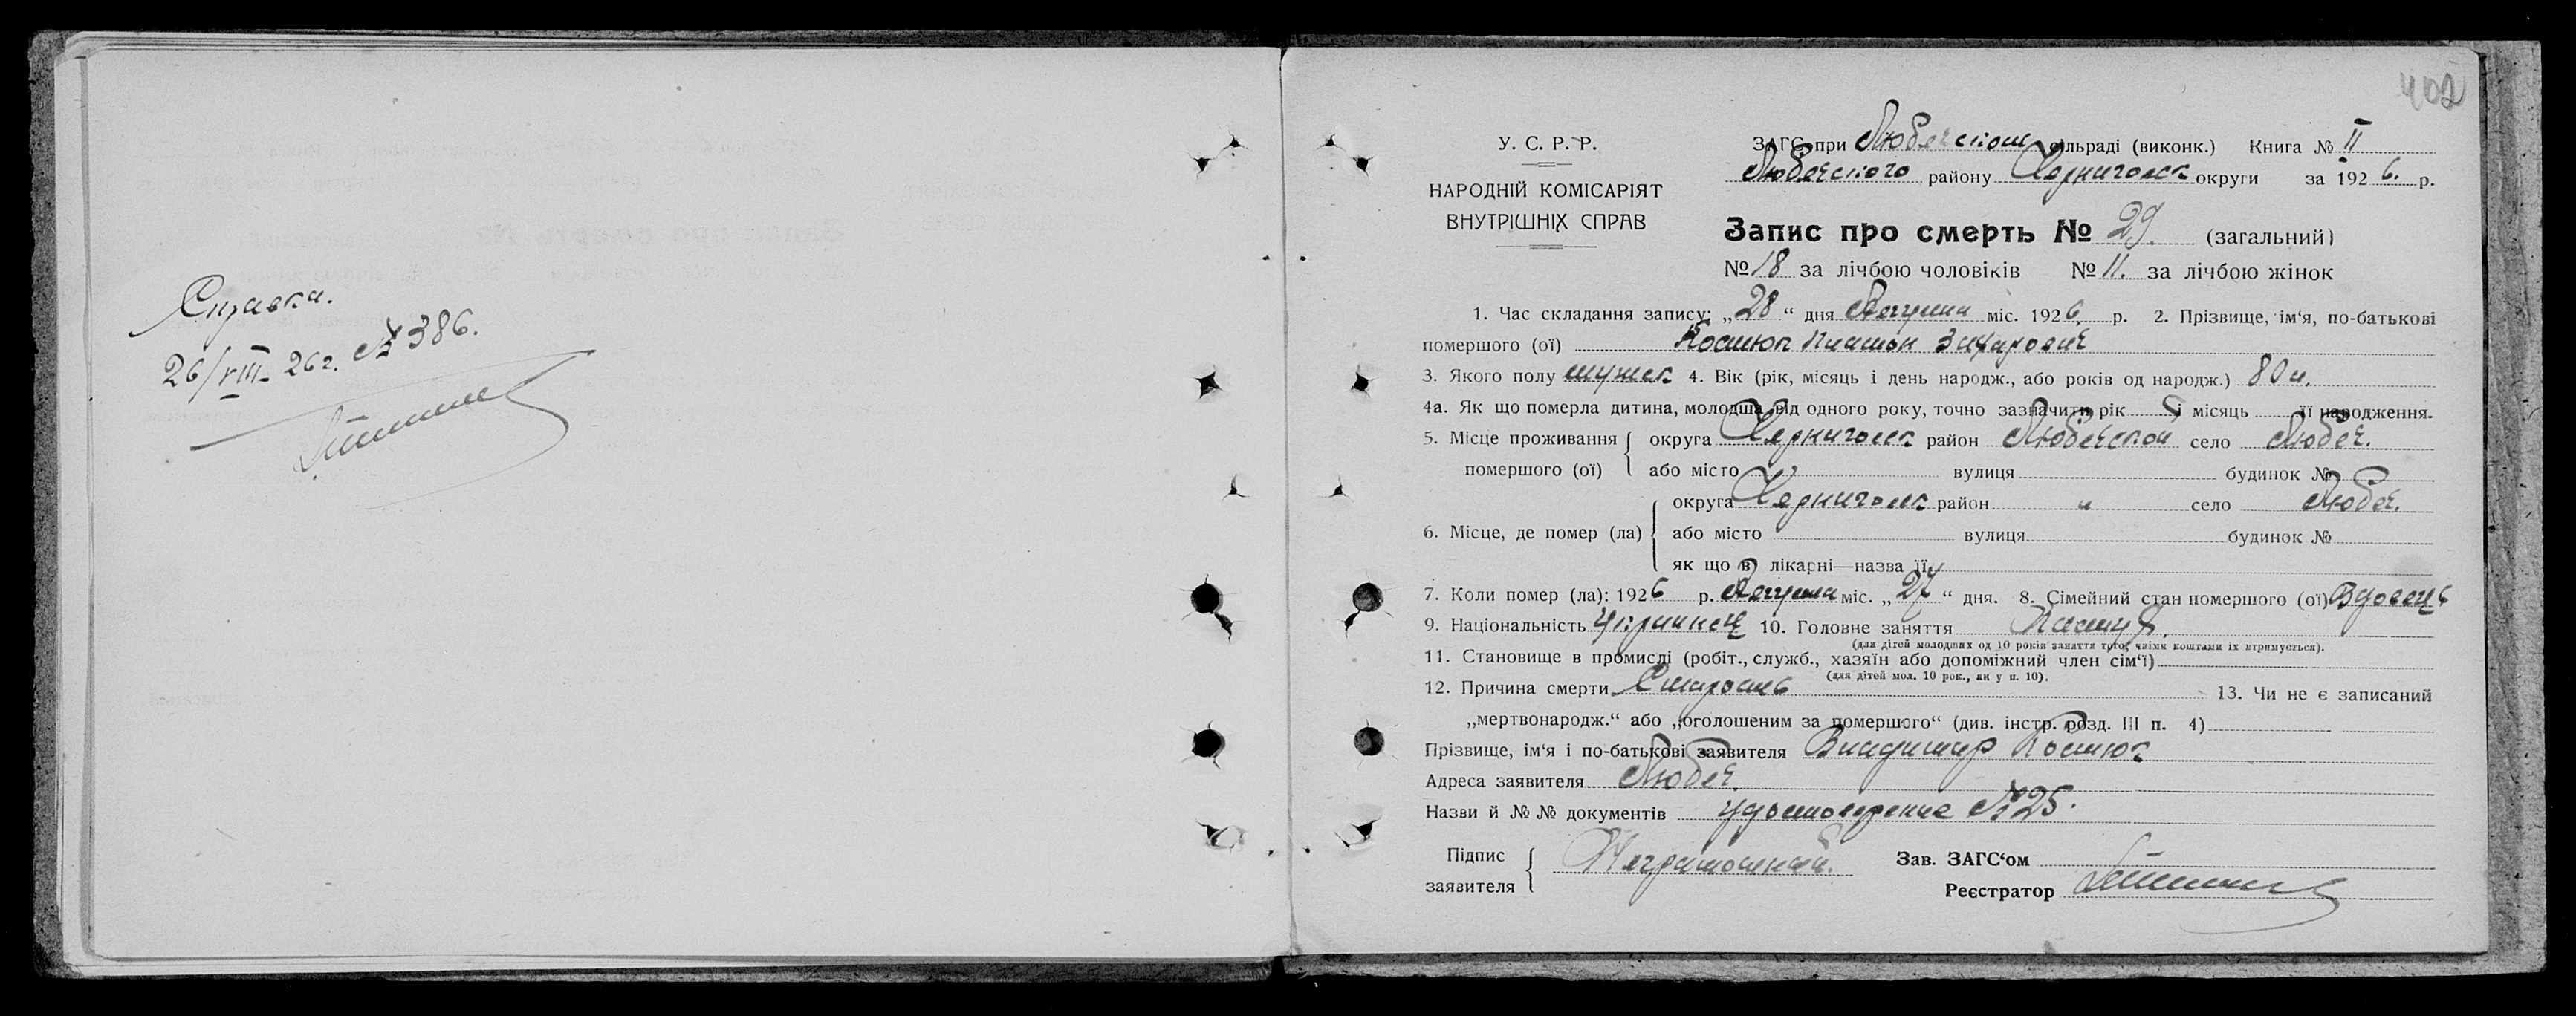 Справка.
26/VIII 26 г. № 386.
402
У. С. Р. Р.
НАРОДНІЙ КОМІСАРІЯТ
ВНУТРІШНІХ СПРАВ
ЗАГС при Любечском сільраді (виконк.) Книга № II
Любечского району Черниговск округи за 1926. р.
Запис про смерть № 29. (загальний)
№ 18 за лічбою чоловіків № 11. за лічбою жінок
1. Час складання запису: „28“ дня Августа міс. 1926 р. 2. Прізвище, ім‘я, по-батькові
помершого (ої) Костюк Платон Захарович
3. Якого полу мужск 4. Вік (рік, місяць і день народж., або років од народж.) 80 л.
4а. Як що померла дитина, молодша від одного року, точно зазначити рік і місяць її народження.
5. Місце проживання помершого (ої) округа Черниговск район Любечской село Любеч.
або місто вулиця будинок №
6. Місце, де помер (ла) округа Черниговск район " село Любеч.
або місто вулиця будинок №
як що в лікарні—назва її
7. Коли помер (ла): 1926 р. Августа міс. „27“ дня. 8. Сімейний стан помершого (ої) Вдовець
9. Національність Украинец 10. Головне заняття
(для дітей молодших од 10 років заняття того, чиїми коштами їх втримується).
11. Становище в промислі (робіт., служб., хазяїн або допоміжний член сім‘ї)
(для дітей мол. 10 рок., як у п. 10).
12. Причина смерти Старость 13. Чи не є записаний
„мертвонародж.“ або „оголошеним за помершого“ (див. інстр. розд. III п. 4)
Прізвище, ім‘я і по-батькові заявителя Владимир Костюк
Адреса заявителя Любеч.
Назви й № № документів удостоверение № 25.
Підпис заявителя Неграмотный. Зав. ЗАГС‘ом
Реєстратор